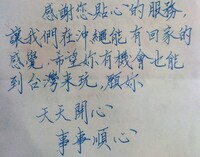 感謝您貼心的服務,
讓我們在沖繩能有回家的
感覺.希望妳有機會也能
到台灣来玩,願妳
天天開心
事事順心